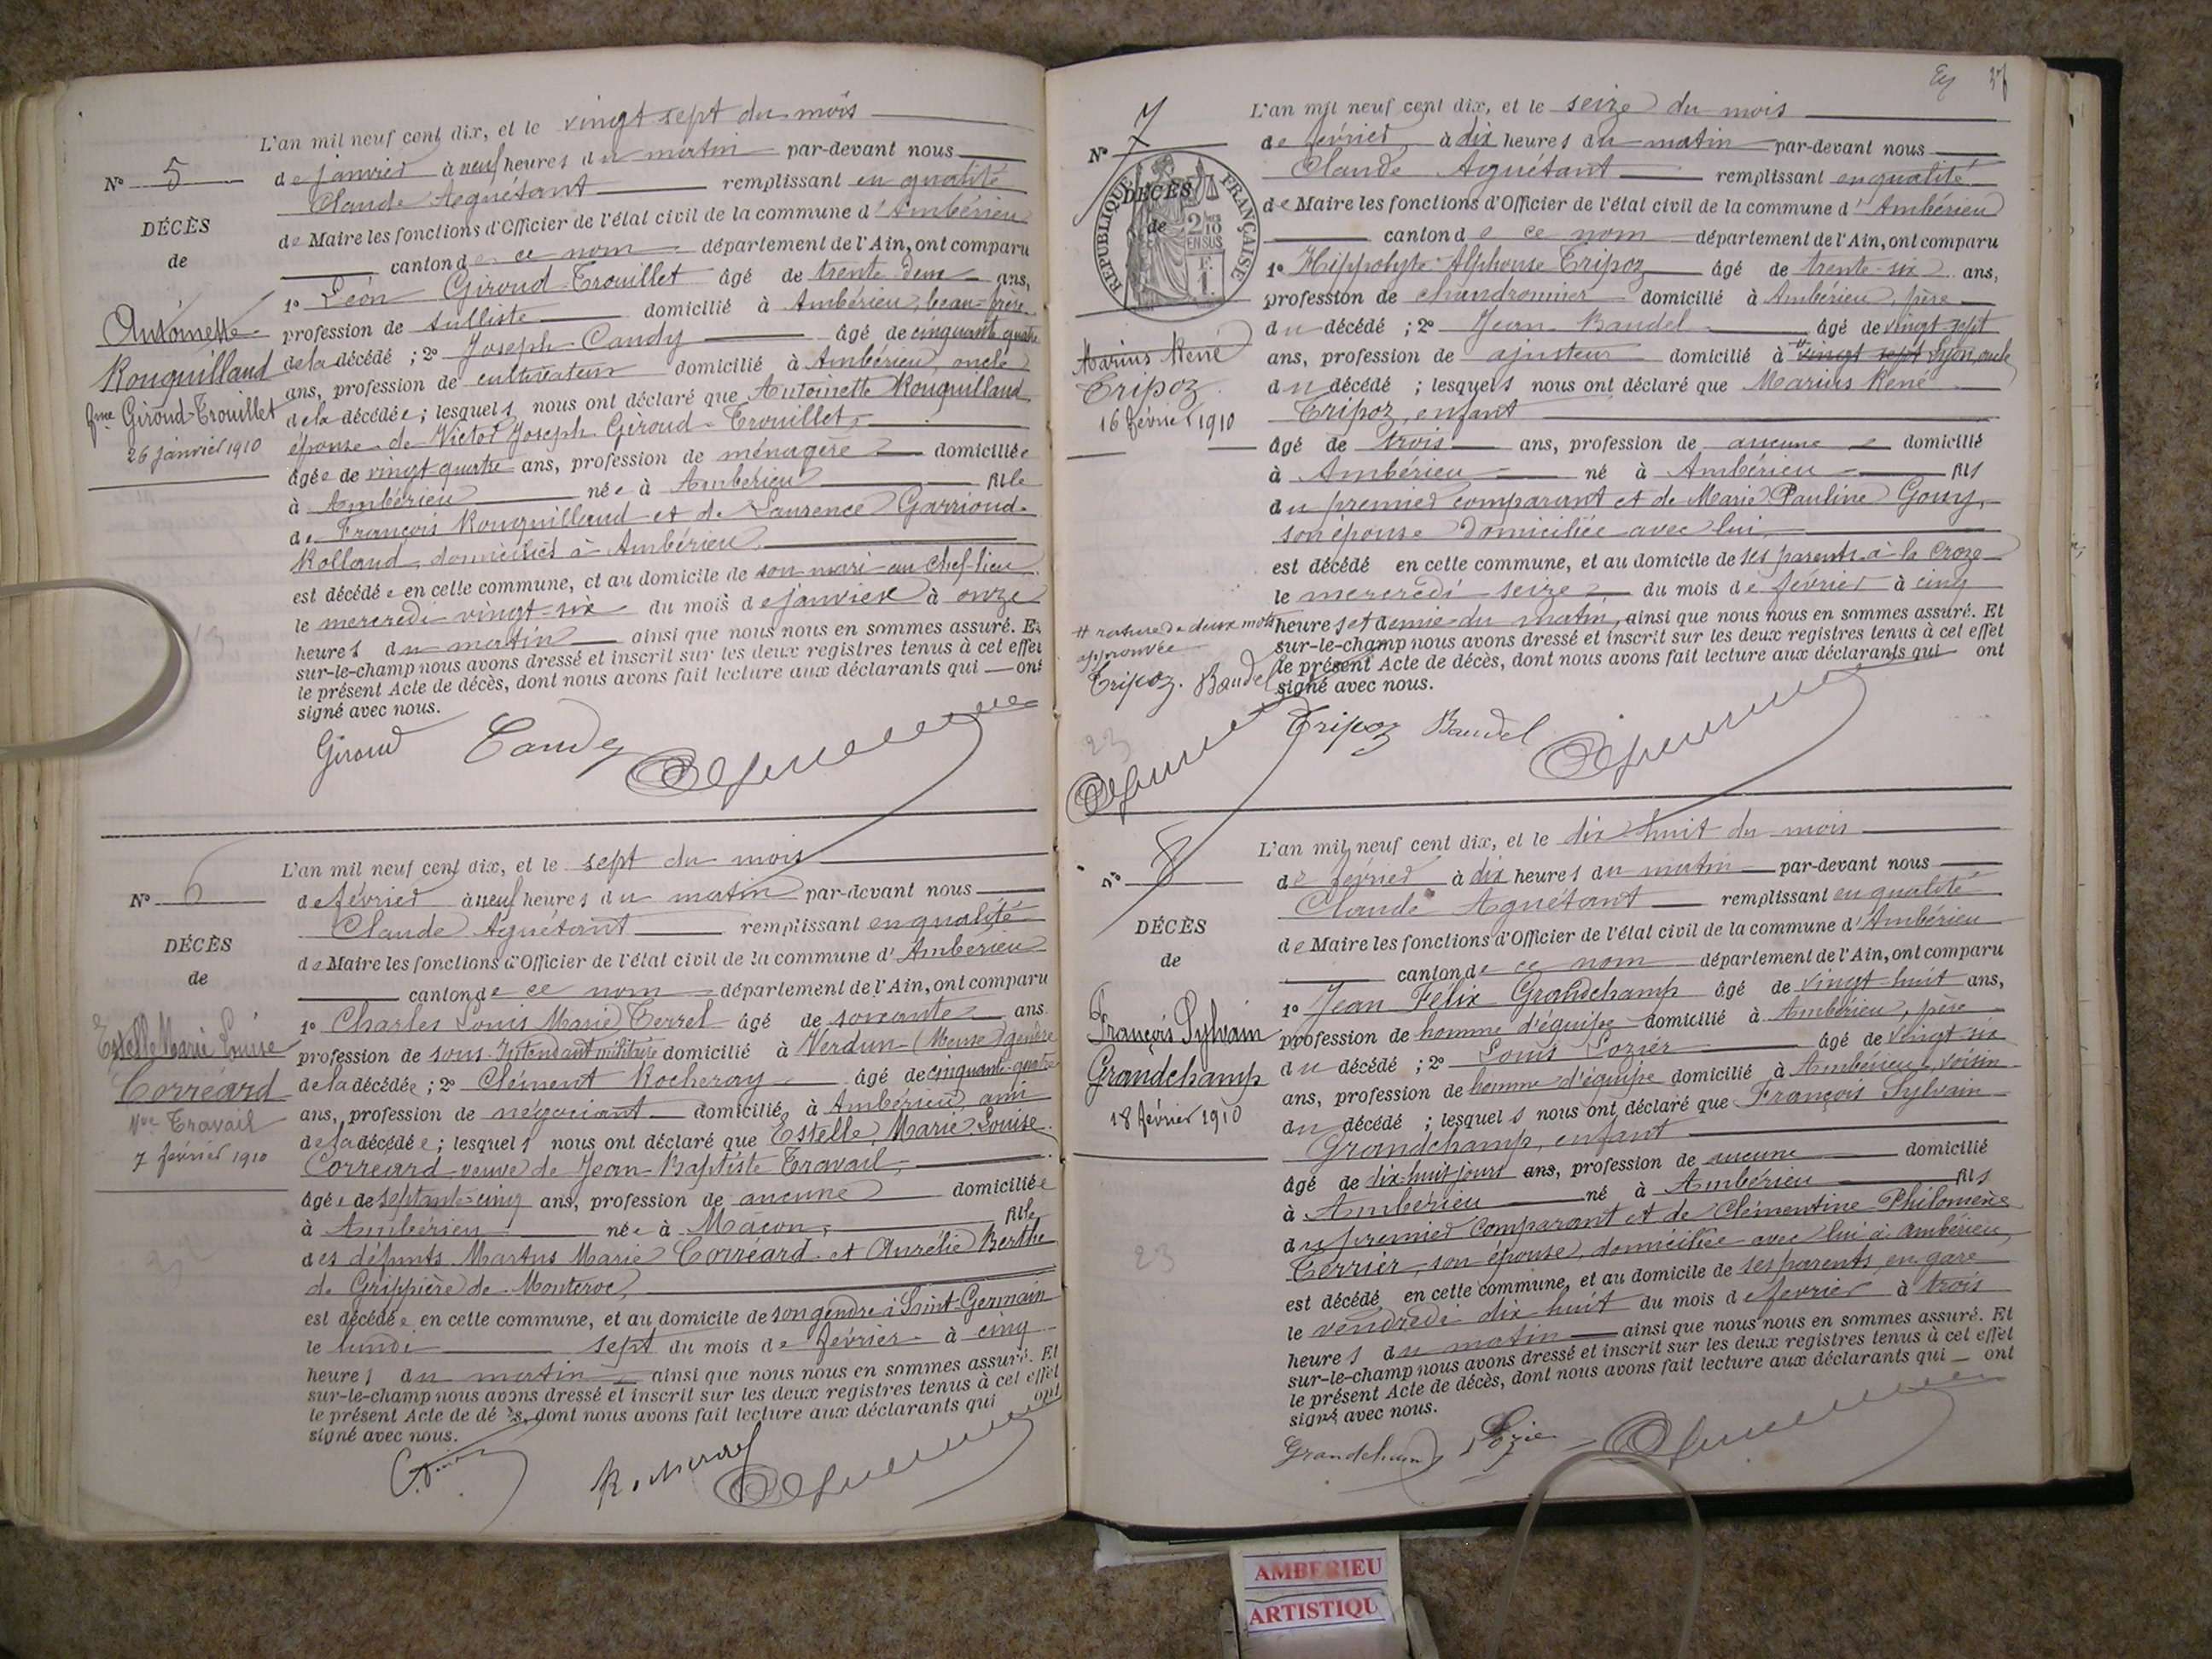 L'an mil neuf cent dix, et le vingt sept du mois
N° 5
de janvier à neuf heures du matin par-devant nous
Claude Aguétant remplissant en qualité
DÉCÈS
de Maire les fonctions d'Officier de l'état civil de la commune d'Ambérieu
de
canton de ce nom département de l'Ain, ont comparu
1° Léon Giroud-Trouillet âgé de trente deux ans,
Antoinette
profession de tulliste domicilié à Ambérieu, beau-frère
Rouguilland
de la décédé ; 2° Joseph Candy âgé de cinquante quatre
ans, profession de cultivateur domicilié à Ambérieu, oncle
fme Giroud-Trouillet
de la décédée ; lesquels nous ont déclaré que Antoinette Rouguilland
26 janvier 1910
épouse de Victor Joseph Giroud-Trouillet,
âgée de vingt quatre ans, profession de ménagère domiciliée
à Ambérieu née à Ambérieu fille
de François Rouguilland et de Laurence Garrioud-
Rolland, domiciliés à Ambérieu
est décédée en cette commune, et au domicile de son mari au chef-lieu
le mercredi vingt-six du mois de janvier à onze
heures du matin ainsi que nous nous en sommes assuré. Et
sur-le-champ nous avons dressé et inscrit sur les deux registres tenus à cet effet
le présent Acte de décès, dont nous avons fait lecture aux déclarants qui ont
signé avec nous.
Giroud Candy
L'an mil neuf cent dix, et le sept du mois
N° 6
de février à neuf heures du matin par-devant nous
Claude Aguétant remplissant en qualité
DÉCÈS
de Maire les fonctions d'Officier de l'état civil de la commune d'Ambérieu
de
canton de ce nom département de l'Ain, ont comparu
1° Charles Louis Marie Terrel âgé de soixante ans
Estelle Marie Louise
profession de sous-Intendant militaire domicilié à Verdun (Meuse) gendre
Corréard
de la décédée ; 2° Clément Rocheray âgé de cinquante-quatre
ans, profession de négociant domicilié à Ambérieu ami
Vve Travail
de la décédée ; lesquels nous ont déclaré que Estelle Marie Louise
7 février 1910
Corréard veuve de Jean-Baptiste Travail,
âgée de septante-cinq ans, profession de aucune domiciliée
à Ambérieu née à Mâcon, fille
des défunts Martus Marie Corréard et Aurélie Berthe
de Grippière de Montcroc,
est décédée en cette commune, et au domicile de son gendre à Saint-Germain
le lundi sept du mois de février à cinq
heures du matin ainsi que nous nous en sommes assuré. Et
sur-le-champ nous avons dressé et inscrit sur les deux registres tenus à cet effet
le présent Acte de décès, dont nous avons fait lecture aux déclarants qui ont
signé avec nous.
L'an mil neuf cent dix, et le seize du mois
N° 7
de février à dix heures du matin par-devant nous
Claude Aguétant remplissant en qualité
RÉPUBLIQUE FRANÇAISE
DÉCÈS
de Maire les fonctions d'Officier de l'état civil de la commune d'Ambérieu
de
2/10 EN SUS
canton de ce nom département de l'Ain, ont comparu
1° Hippolyte Alphonse Tripoz âgé de trente-six ans,
profession de chaudronnier domicilié à Ambérieu, père
du décédé ; 2° Jean Baudel âgé de vingt-sept
Marius René
ans, profession de ajusteur domicilié à # vingt sept Lyon, oncle
Tripoz
du décédé ; lesquels nous ont déclaré que Marius René
16 février 1910
Tripoz, enfant
âgé de trois ans, profession de aucune domicilié
à Ambérieu né à Ambérieu fils
du premier comparant et de Marie Pauline Gouy,
son épouse domiciliée avec lui,
est décédé en cette commune, et au domicile de ses parents à la Croze
le mercredi seize du mois de février à cinq
# rature de deux mots approuvée
heures et demie du matin, ainsi que nous nous en sommes assuré. Et
sur-le-champ nous avons dressé et inscrit sur les deux registres tenus à cet effet
le présent Acte de décès, dont nous avons fait lecture aux déclarants qui ont
Tripoz. Baudel
signé avec nous.
Tripoz Baudel
23
L'an mil neuf cent dix, et le dix huit du mois
N° 8
de février à dix heures du matin par-devant nous
Claude Aguétant remplissant en qualité
DÉCÈS
de Maire les fonctions d'Officier de l'état civil de la commune d'Ambérieu
de
canton de ce nom département de l'Ain, ont comparu
1° Jean Félix Grandchamp âgé de vingt-huit ans,
François Sylvain
profession de homme d'équipe domicilié à Ambérieu, père
Grandchamp
du décédé ; 2° Louis Lozier âgé de vingt six
ans, profession de homme d'équipe domicilié à Ambérieu, voisin
18 février 1910
du décédé ; lesquels nous ont déclaré que François Sylvain
Grandchamp, enfant
âgé de dix-huit jours ans, profession de aucune domicilié
à Ambérieu né à Ambérieu fils
du premier comparant et de Clémentine Philomène
Terrier, son épouse, domiciliée avec lui à Ambérieu
23
est décédé en cette commune, et au domicile de ses parents, en gare
le vendredi dix huit du mois de février à trois
heures du matin ainsi que nous nous en sommes assuré. Et
sur-le-champ nous avons dressé et inscrit sur les deux registres tenus à cet effet
le présent Acte de décès, dont nous avons fait lecture aux déclarants qui ont
signé avec nous.
Grandchamp Lozier
AMBERIEU
ARTISTIQU